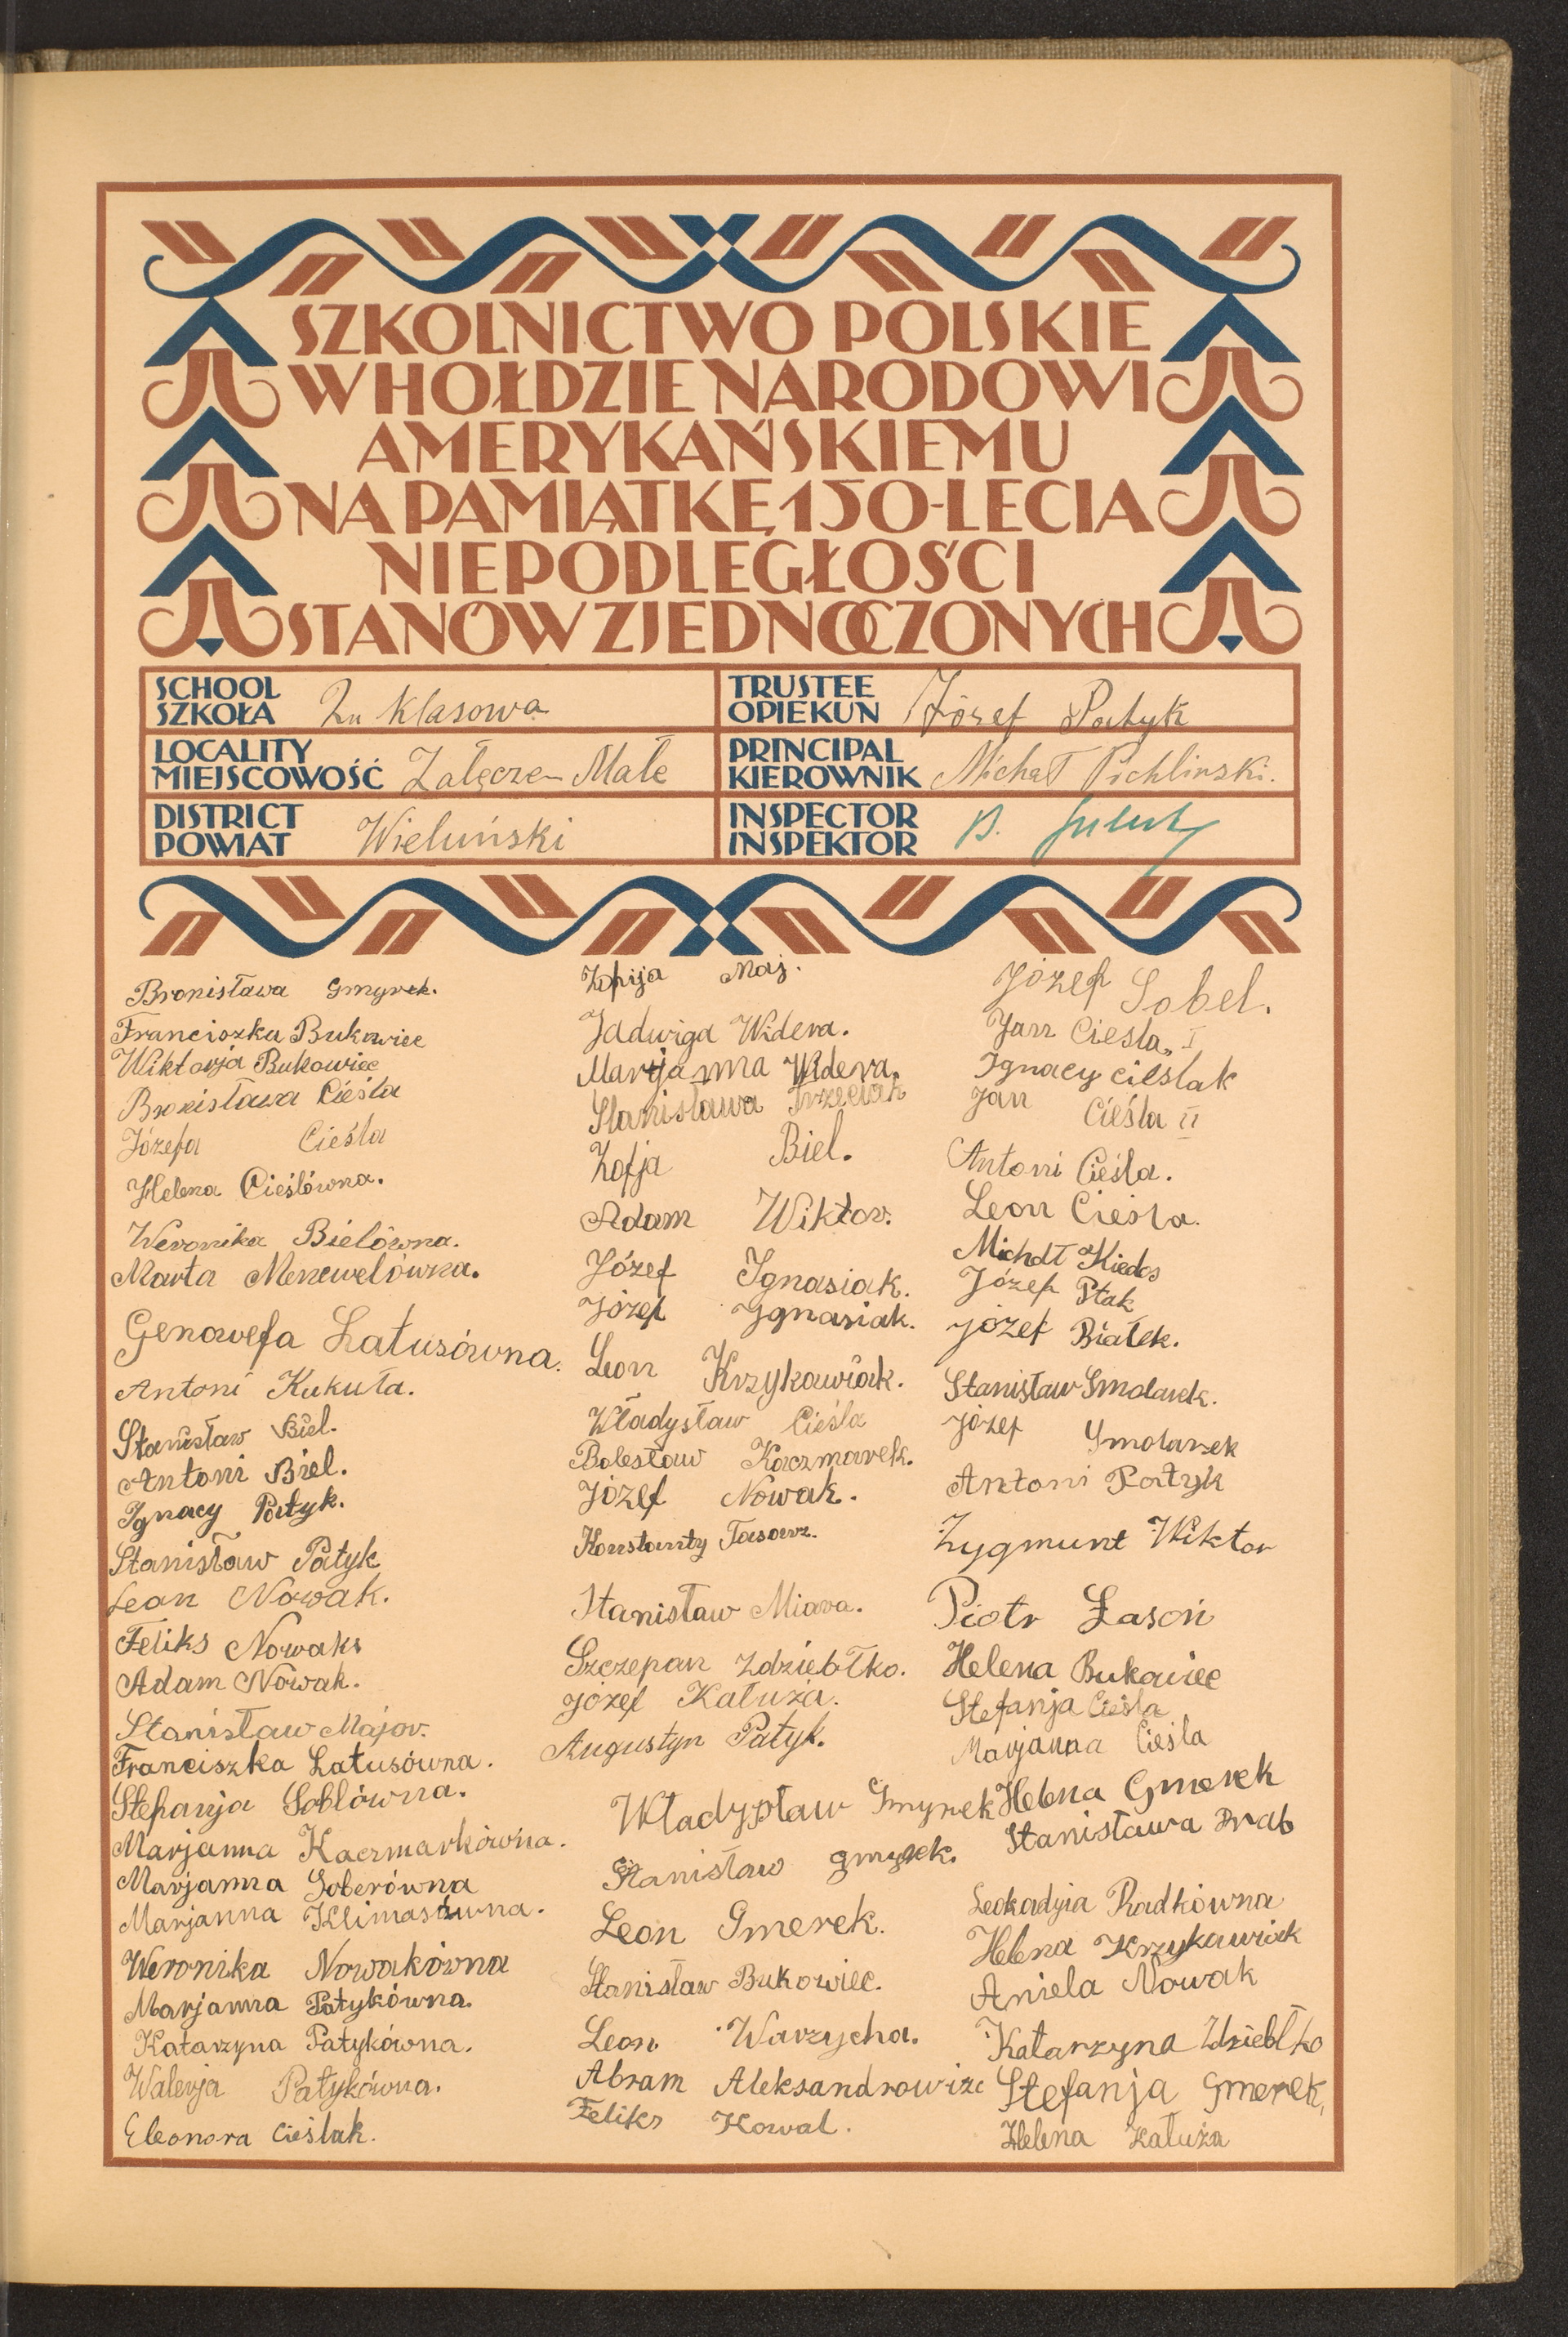 SZKOLNICTWO POLSKIE
W HOŁDZIE NARODOWI
AMERYKAŃSKIEMU
NA PAMIĄTKĘ 150-LECIA
NIEPODLEGŁOŚCI
STANÓW ZJEDNOCZONYCH
SCHOOL
SZKOŁA klasowa
TRUSTEE
OPIEKUN Józef Patyk
LOCALITY
MIEJSCOWOŚĆ Załęcze-Małe
PRINCIPAL
KIEROWNIK Michał Pichlinski.
DISTRICT
POWIAT Wieluński
INSPECTOR
INSPEKTOR
Bronisława Gmyrek.
Franciszka Bukowiec
Wiktorja Bukowiec
Bronisława Cieśla
Józefa Cieśla
Helena Cieślówna.
Weronika Bielówna.
Marta Menewelówna.
Genowefa Łatusówna.
Antoni Kukuła.
Stanisław Biel.
Antoni Biel.
Ignacy Patyk.
Stanisław Patyk
Leon Nowak.
Feliks Nowak
Adam Nowak.
Stanisław Major.
Franciszka Łatusówna.
Stefanja Soblówna.
Marjanna Kaczmarkówna.
Marjanna Soberówna
Marjanna Klimasówna.
Weronika Nowakówna
Marjanna Patykówna.
Katarzyna Patykówna.
Walerja Patykówna.
Eleonora Cieślak.
Zofija Maj.
Jadwiga Widera.
Marjanna Widera.
Stanisława Trzeciak
Zofja Biel.
Adam Wiktor.
Józef Ignasiak.
Józef Ygnasiak.
Leon Krzykawiak.
Władysław Cieśla
Bolesław Kaczmarek.
Józef Nowak.
Konstanty Tasarz.
Stanisław Miara.
Szczepan Zdziebłko.
Józef Kałuża.
Augustyn Patyk.
Władysław Gmyrek
Stanisław Gmyrek.
Leon Gmerek.
Stanisław Bukowiec.
Leon Warzycha.
Abram Aleksandrowizc
Feliks Kowal.
Józef Sobel.
Jan Cieśla I
Ignacy Cieślak
Jan Cieśla II
Antoni Cieśla.
Leon Cieśla.
Michał Kiedos
Józef Ptak
Józef Białek.
Stanisław Smolarek.
Józef Smolarek
Antoni Patyk
Zygmunt Wiktor
Piotr Łasoń
Helena Bukowiec
Stefanja Cieśla
Marjanna Cieśla
Helena Gmerek
Stanisława Drab
Leokadyia Radkówna
Helena Krzykawiak
Aniela Nowak
Katarzyna Zdziebłko
Stefanja Gmerek,
Helena Kałuża